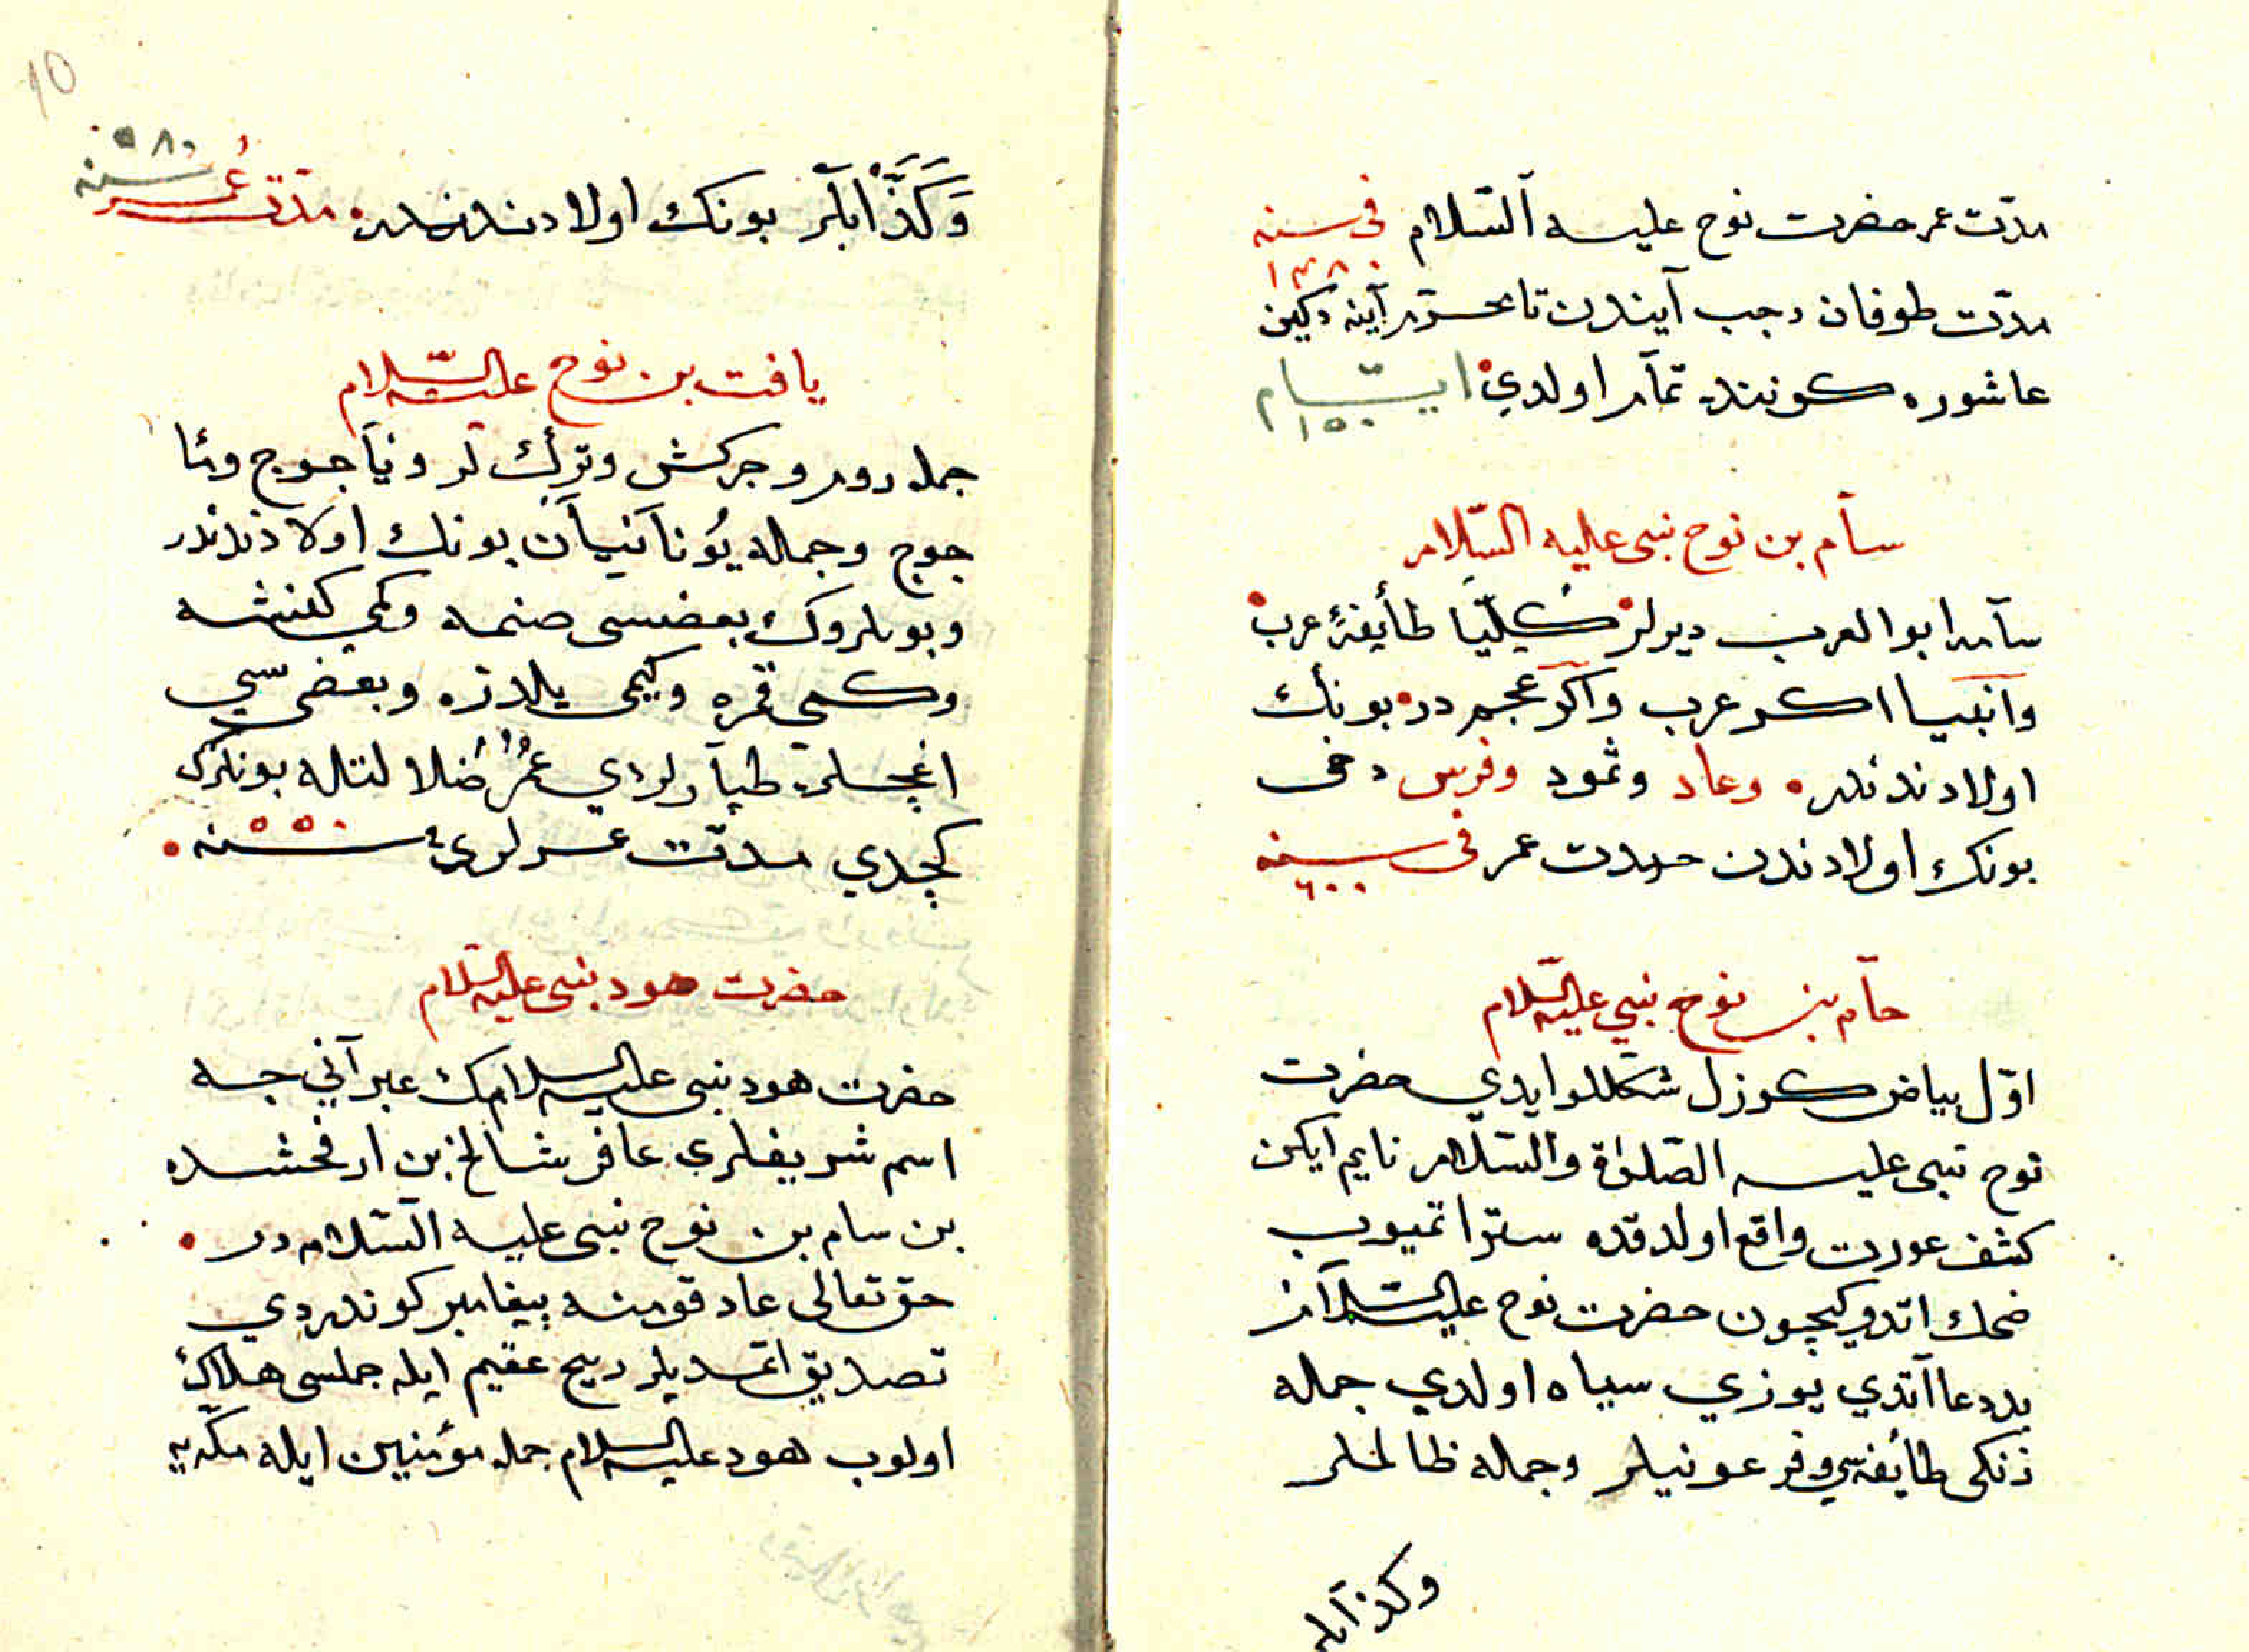 مدّت عمر حضرت نوح عليه السّلام فى سنه ١٣٨٠
مدّت طوفان رجب آيندن تا محرّم آينه دكين
عاشوره كوننده تمام اولدي ايّام ١٥٠
سام بن نوح نبى عليه السّلام
سام ابو العرب ديرلر كليّا طائفهٔ عرب
وانبيا اكر عرب واكر عجم در بونك
اولادندندر وعاد وثمود وفرس دخى
بونك اولادندن مدت عمر فى سنه ٦٠٠
حام بن نوح نبي عليه السّلام
اوّل بياض كوزل شكللو ايدي حضرت
نوح نبى عليه الصّلوة والسّلام نايم ايكن
كشف عورت واقع اولدقده ستر اتميوب
ضحك اتدوكيچون حضرت نوح عليه السّلام
بددعا اتدي يوزي سياه اولدي جمله
زنكى طائفه سي وفرعونيلر وجمله ظالملر
وكذابلر
10
وَكَذّابلر بونك اولادندندر مدّت عمر سنه ٥٨٠
يافت بن نوح عليه السّلام
جمله روم وجركش وترك لر وياجوج وما
جوج وجمله يونانيان بونك اولادندندر
وبونلروك بعضسى صنمه وكمي كنشه
وكمي قمره وكيمى يلدزه وبعضى سي
اغچلره طپارلردي عمر ضلالتله بونلرك
كچدي مدّت عمرلرى سنه ٥٥٠
حضرت هود نبى عليه السّلام
حضرت هود نبى عليه السلامك عبرآني جه
اسم شريفلرى عافر شالخ بن ارفحشده
بن سام بن نوح نبى عليه السّلام در
حق تعالى عاد قومنه پيغامبر كوندردي
تصديق اتمديلر ريح عقيم ايله جمله سى هلاك
اولوب هود عليه السلام جمله مؤمنين ايله مكّه يه